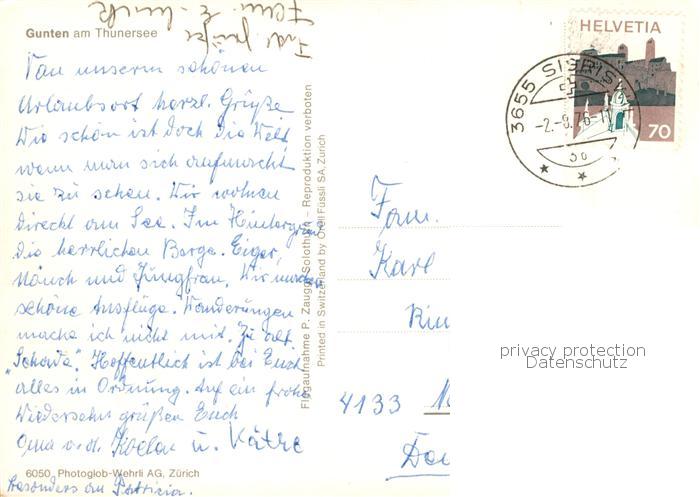 Gunten am Thunersee
Von unserm schönen
Urlaubsort herzl. Grüße
Wie schön ist doch die Welt,
wenn man sich aufmacht
sie zu sehen. Wir wohnen
direkt am See. Im Hintergrund
die herrlichen Berge. Eiger,
Mönch und Jungfrau. Wir machen
schöne Ausflüge. Wanderungen
mache ich nicht mit. Zu alt.
"Schade". Hoffentlich ist bei Euch
alles in Ordnung. Auf ein frohes
Wiedersehn grüßen Euch
Oma u. Käthe
besonders an Patrizia.
6050 Photoglob-Wehrli AG, Zürich
Flugaufnahme P. Zaugg, Solothurn – Reproduktion verboten
Printed in Switzerland by Orell Füssli SA, Zürich
HELVETIA
70
3655 SIGRIS
-2.-9.76-11
Fam.
Karl
4133
privacy protection
Datenschutz